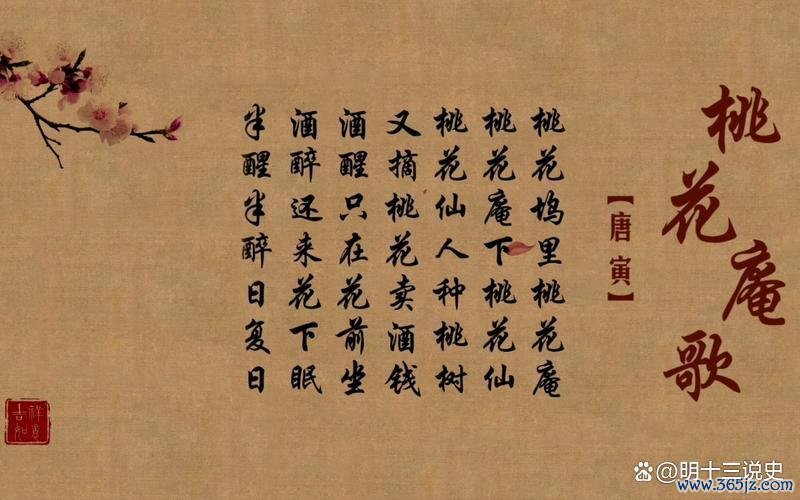 桃花庵歌
【唐寅】
桃花坞里桃花庵
桃花庵下桃花仙
桃花仙人种桃树
又摘桃花卖酒钱
酒醒只在花前坐
酒醉还来花下眠
半醒半醉日复日
吉祥如意
@明十三说史
www.365jz.com